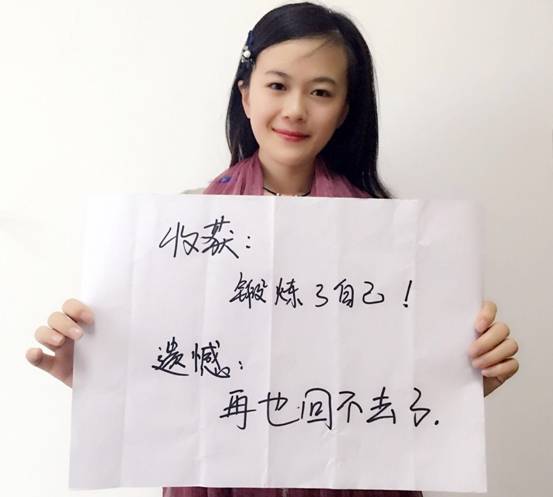 收获：
锻炼了自己！
遗憾：
再也回不去了.